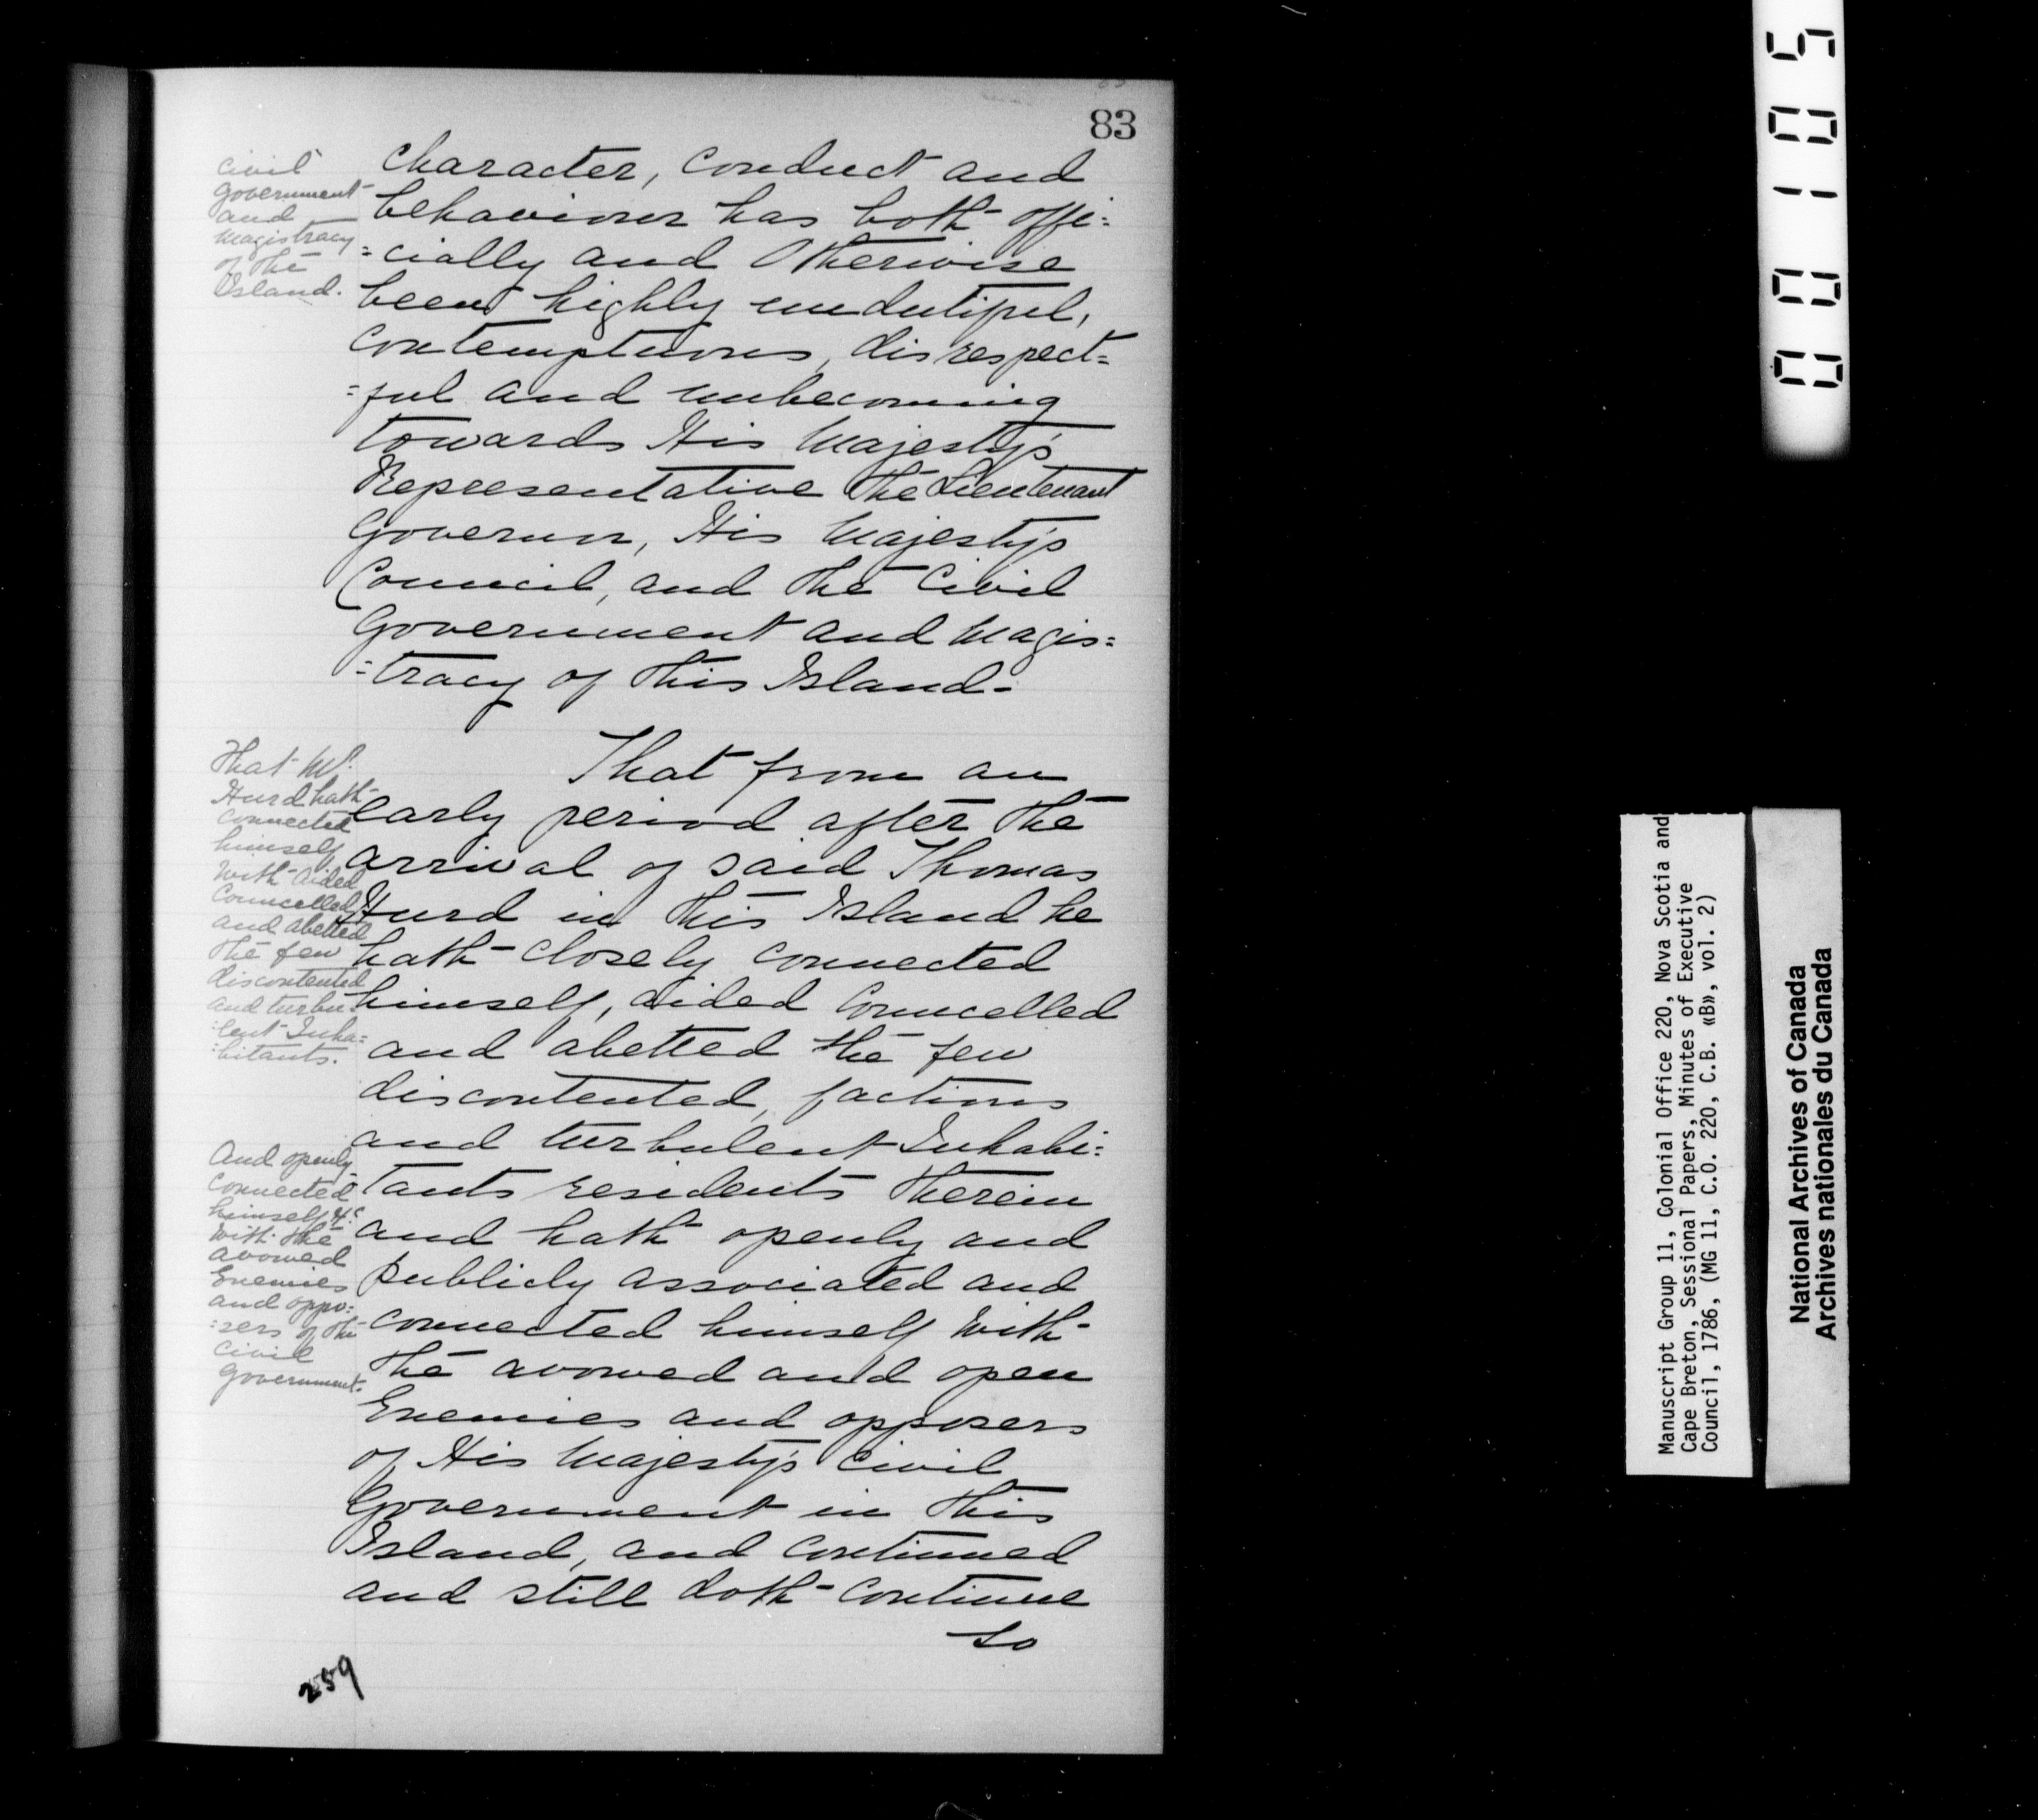 83
civil
Government
and
Magistracy
of the
Island.
Character, Conduct and
behaviour has both offi=
=cially and Otherwise
been highly undutiful,
Contemptuous, disrespect=
=ful and unbecoming
towards His Majesty's
Representative the Lieutenant
Governor, His Majesty's
Council, and the Civil
Government and Magis=
=tracy of this Island-
That Mr.
Hurd hath
connected
himself
with aided
Councelled
and abetted
the few
discontented
and turbu=
=lent Inha=
=bitants.
That from an
early period after the
arrival of said Thomas
Hurd in this Island he
hath closely connected
himself, aided Councelled
and abetted the few
discontented, factious
and turbulent Inhabi=
=tants residents therein
and hath openly and
publicly associated and
connected himself with
the avowed and open
Enemies and opposers
of His Majesty's Civil
Government in this
Island, and Continued
and still doth Continue
so
And openly
connected
himself &c
with the
avowed
Enemies
and oppo=
=sers of the
civil
Government.
259
00105
Manuscript Group 11, Colonial Office 220, Nova Scotia and
Cape Breton, Sessional Papers, Minutes of Executive
Council, 1786, (MG 11, C.O. 220, C.B. «B», vol. 2)
National Archives of Canada
Archives nationales du Canada